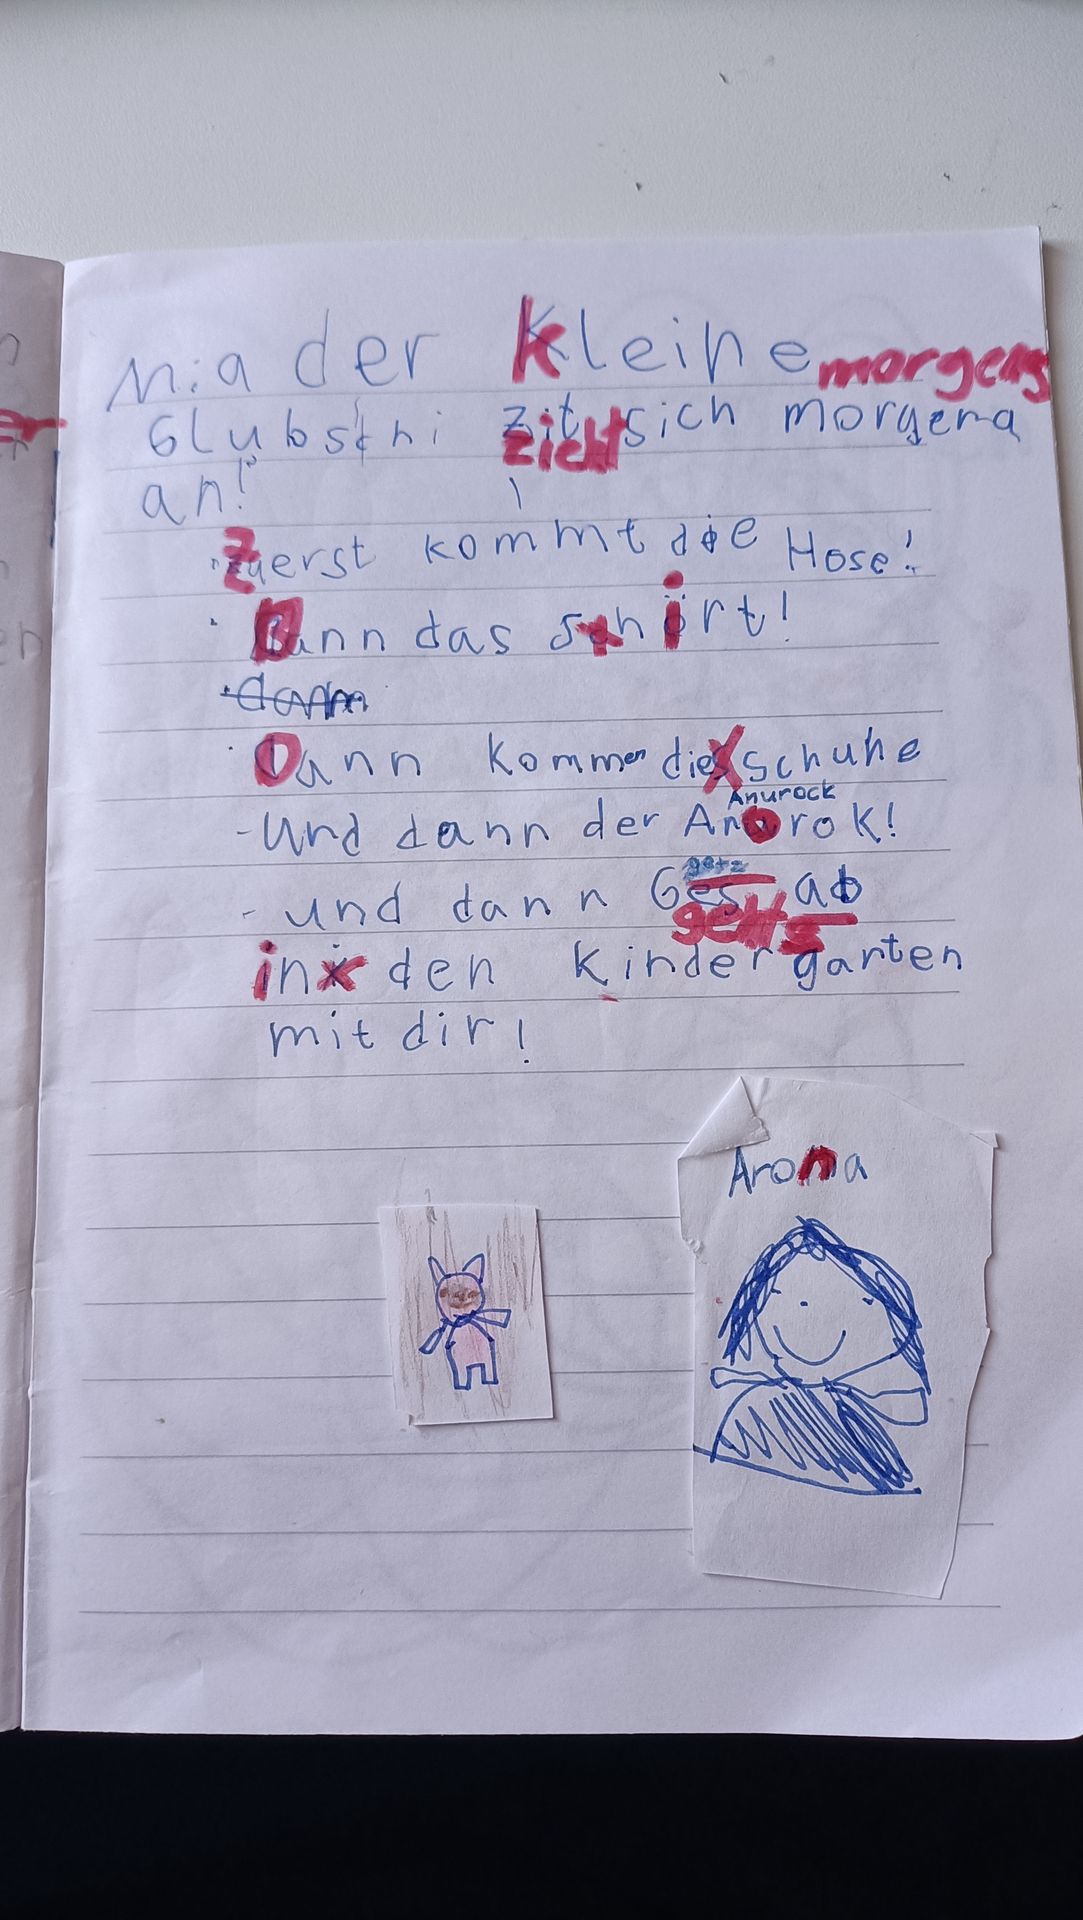 Mia der kleine morgens
Glubschi zit sich morgena
zieht
an!
Zuerst kommt die Hose!
Dann das Schirt!
dann
Dann kommen die Schuhe
Anurock
- Und dann der Anorok!
getz
- und dann Ges ab
gehts
in den Kindergarten
mit dir!
Arona